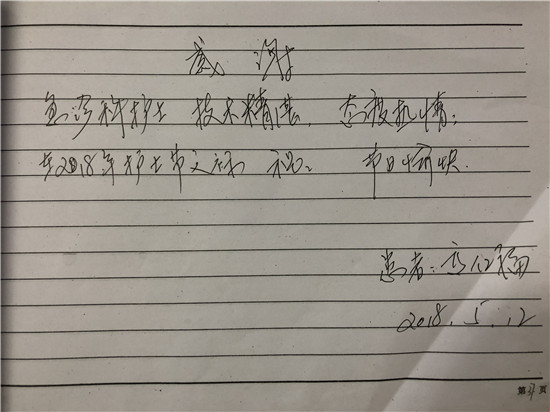 感谢
急诊科护士 技术精湛，态度热情；
在2018年护士节之际 祝：节日愉快.
患者：
2018.5.12
第37页